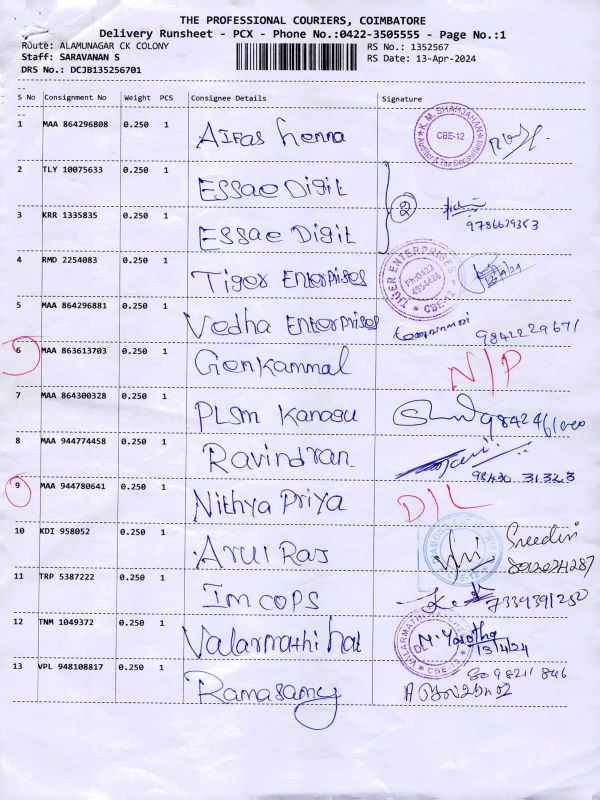 THE PROFESSIONAL COURIERS, COIMBATORE
Delivery Runsheet - PCX - Phone No.:0422-3505555 - Page No.:1
Route: ALAMUNAGAR CK COLONY RS No.: 1352567
Staff: SARAVANAN S RS Date: 13-Apr-2024
DRS No.: DCJB135256701
S No Consignment No Weight PCS Consignee Details Signature
1 MAA 864296808 0.250 1 AIFas henna
K. M. SHAHJAHAN CBE-12 Auditor & Tax Consultant
2 TLY 10075633 0.250 1 Essae Digit
3 KRR 1335835 0.250 1 Essae Digit 2
4 RMD 2254083 0.250 1 Tiger Enterprises
TIGER ENTERPRISES CBE-12
5 MAA 864296881 0.250 1 Vedha Enterprises 9842229671
6 MAA 863613703 0.250 1 Genkammal N/P
7 MAA 864300328 0.250 1 PLSM Kanagu
8 MAA 944774458 0.250 1 Ravindran 98430 31323
9 MAA 944780641 0.250 1 Nithya Priya D/L
10 KDI 958052 0.250 1 Arul Raj
11 TRP 5387222 0.250 1 Imcops
12 TNM 1049372 0.250 1 Valarmathi hal 13/4/24
13 VPL 948108817 0.250 1 Ramasamy